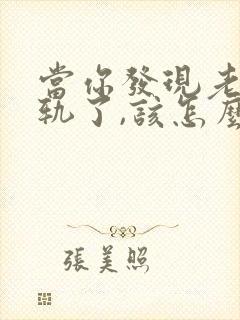 當你發現老
軌了,該怎麼
張美照